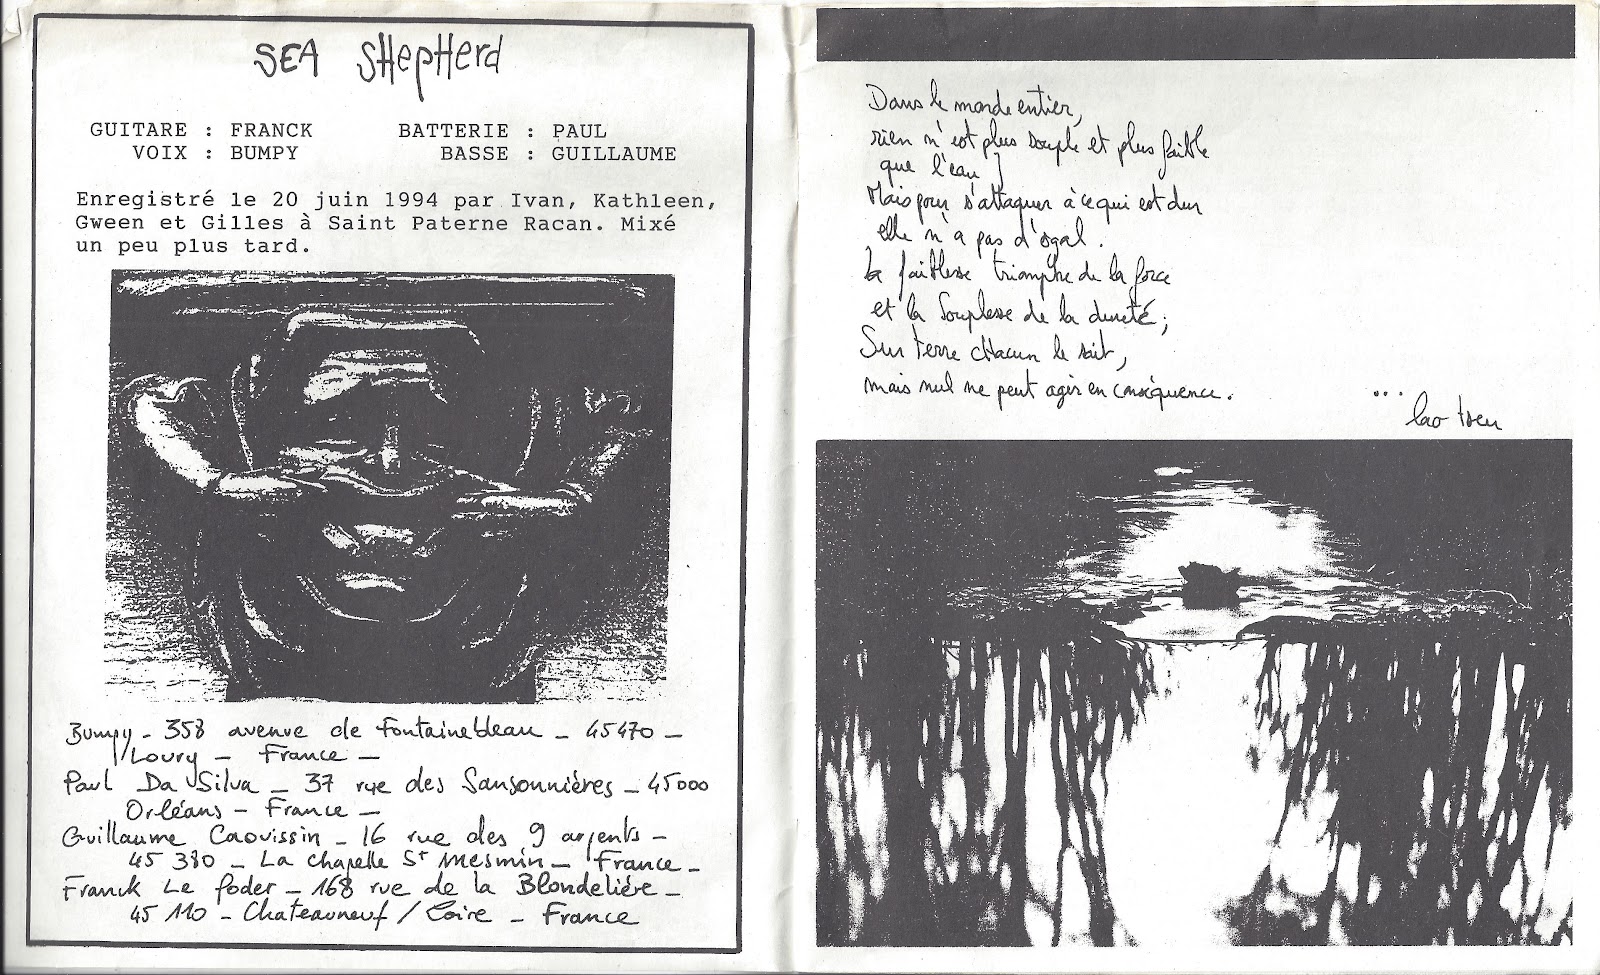 SEA SHEPHERD
GUITARE : FRANCK BATTERIE : PAUL
VOIX : BUMPY BASSE : GUILLAUME
Enregistré le 20 juin 1994 par Ivan, Kathleen,
Gween et Gilles à Saint Paterne Racan. Mixé
un peu plus tard.
Bumpy - 358 avenue de Fontainebleau - 45470 -
Loury - France -
Paul Da Silva - 37 rue des Sansonnières - 45000
Orléans - France -
Guillaume Caovissin - 16 rue des 9 arpents -
45 380 - La chapelle St Mesmin - France -
Franck Le foder - 168 rue de la Blondelière -
45 110 - Chateauneuf / Loire - France
Dans le monde entier,
rien n'est plus souple et plus faible
que l'eau
Mais pour s'attaquer à ce qui est dur
elle n'a pas d'égal.
La faiblesse triomphe de la force
et la souplesse de la dureté ;
Sur terre chacun le sait,
mais nul ne peut agir en conséquence.
...
lao tseu